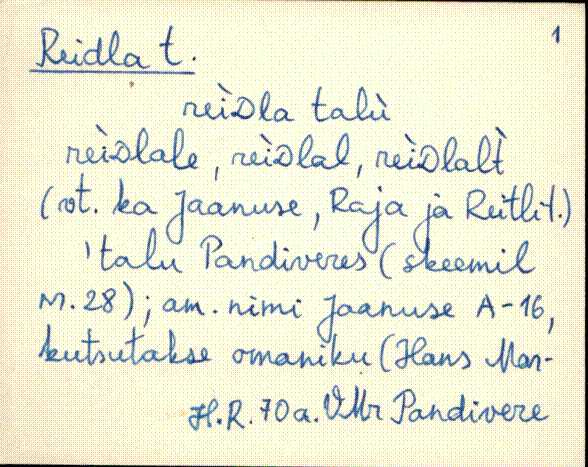 1
Reidla t.
rèiDla talù
rèiDlale, rèiDlal, rèiDlalt̀
(vt. ka Jaanuse, Raja ja Reitli t.)
'talu Pandiveres (skeemil
nr. 28); am. nimi Jaanuse A-16,
kutsutakse omaniku (Hans Mar-
H.R. 70a. VMr Pandivere